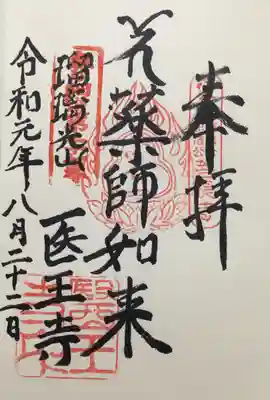 奉拝
芝薬師如来
瑠璃光山
医王寺
令和元年八月二十二日